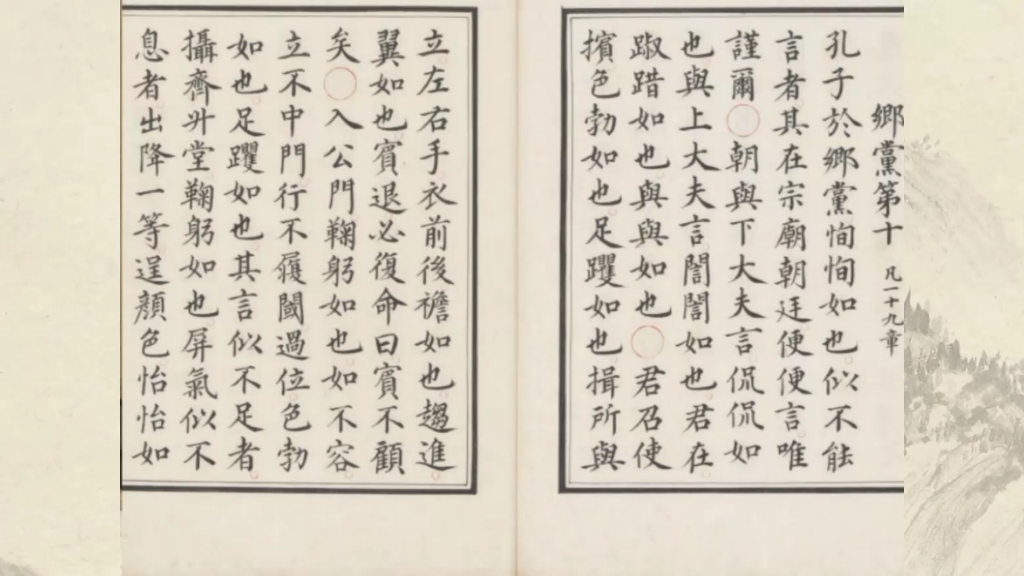 鄉黨第十 凡一十九章
孔子於鄉黨恂恂如也似不能
言者其在宗廟朝廷便便言唯
謹爾○朝與下大夫言侃侃如
也與上大夫言誾誾如也君在
踧踖如也與與如也○君召使
擯色勃如也足躩如也揖所與
立左右手衣前後襜如也趨進
翼如也賓退必復命曰賓不顧
矣○入公門鞠躬如也如不容
立不中門行不履閾過位色勃
如也足躩如也其言似不足者
攝齊升堂鞠躬如也屏氣似不
息者出降一等逞顏色怡怡如